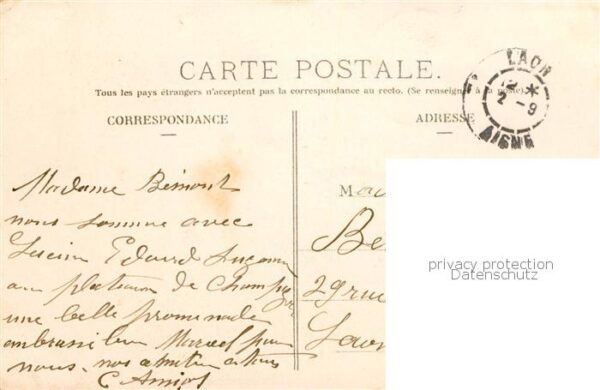 CARTE POSTALE.
Tous les pays étrangers n'acceptent pas la correspondance au recto. (Se renseigner à la poste).
LAON
12 *
2 - 9
AISNE
CORRESPONDANCE
ADRESSE
Madame Bemont
nous somme avec
Lucien Edouard Suzanne
au plateau de
une belle promenade
embrassé bien Marcel pour
nous. nos amitié a tous
C Amiot
Ma
Be
29 rue
Laon
privacy protection
Datenschutz